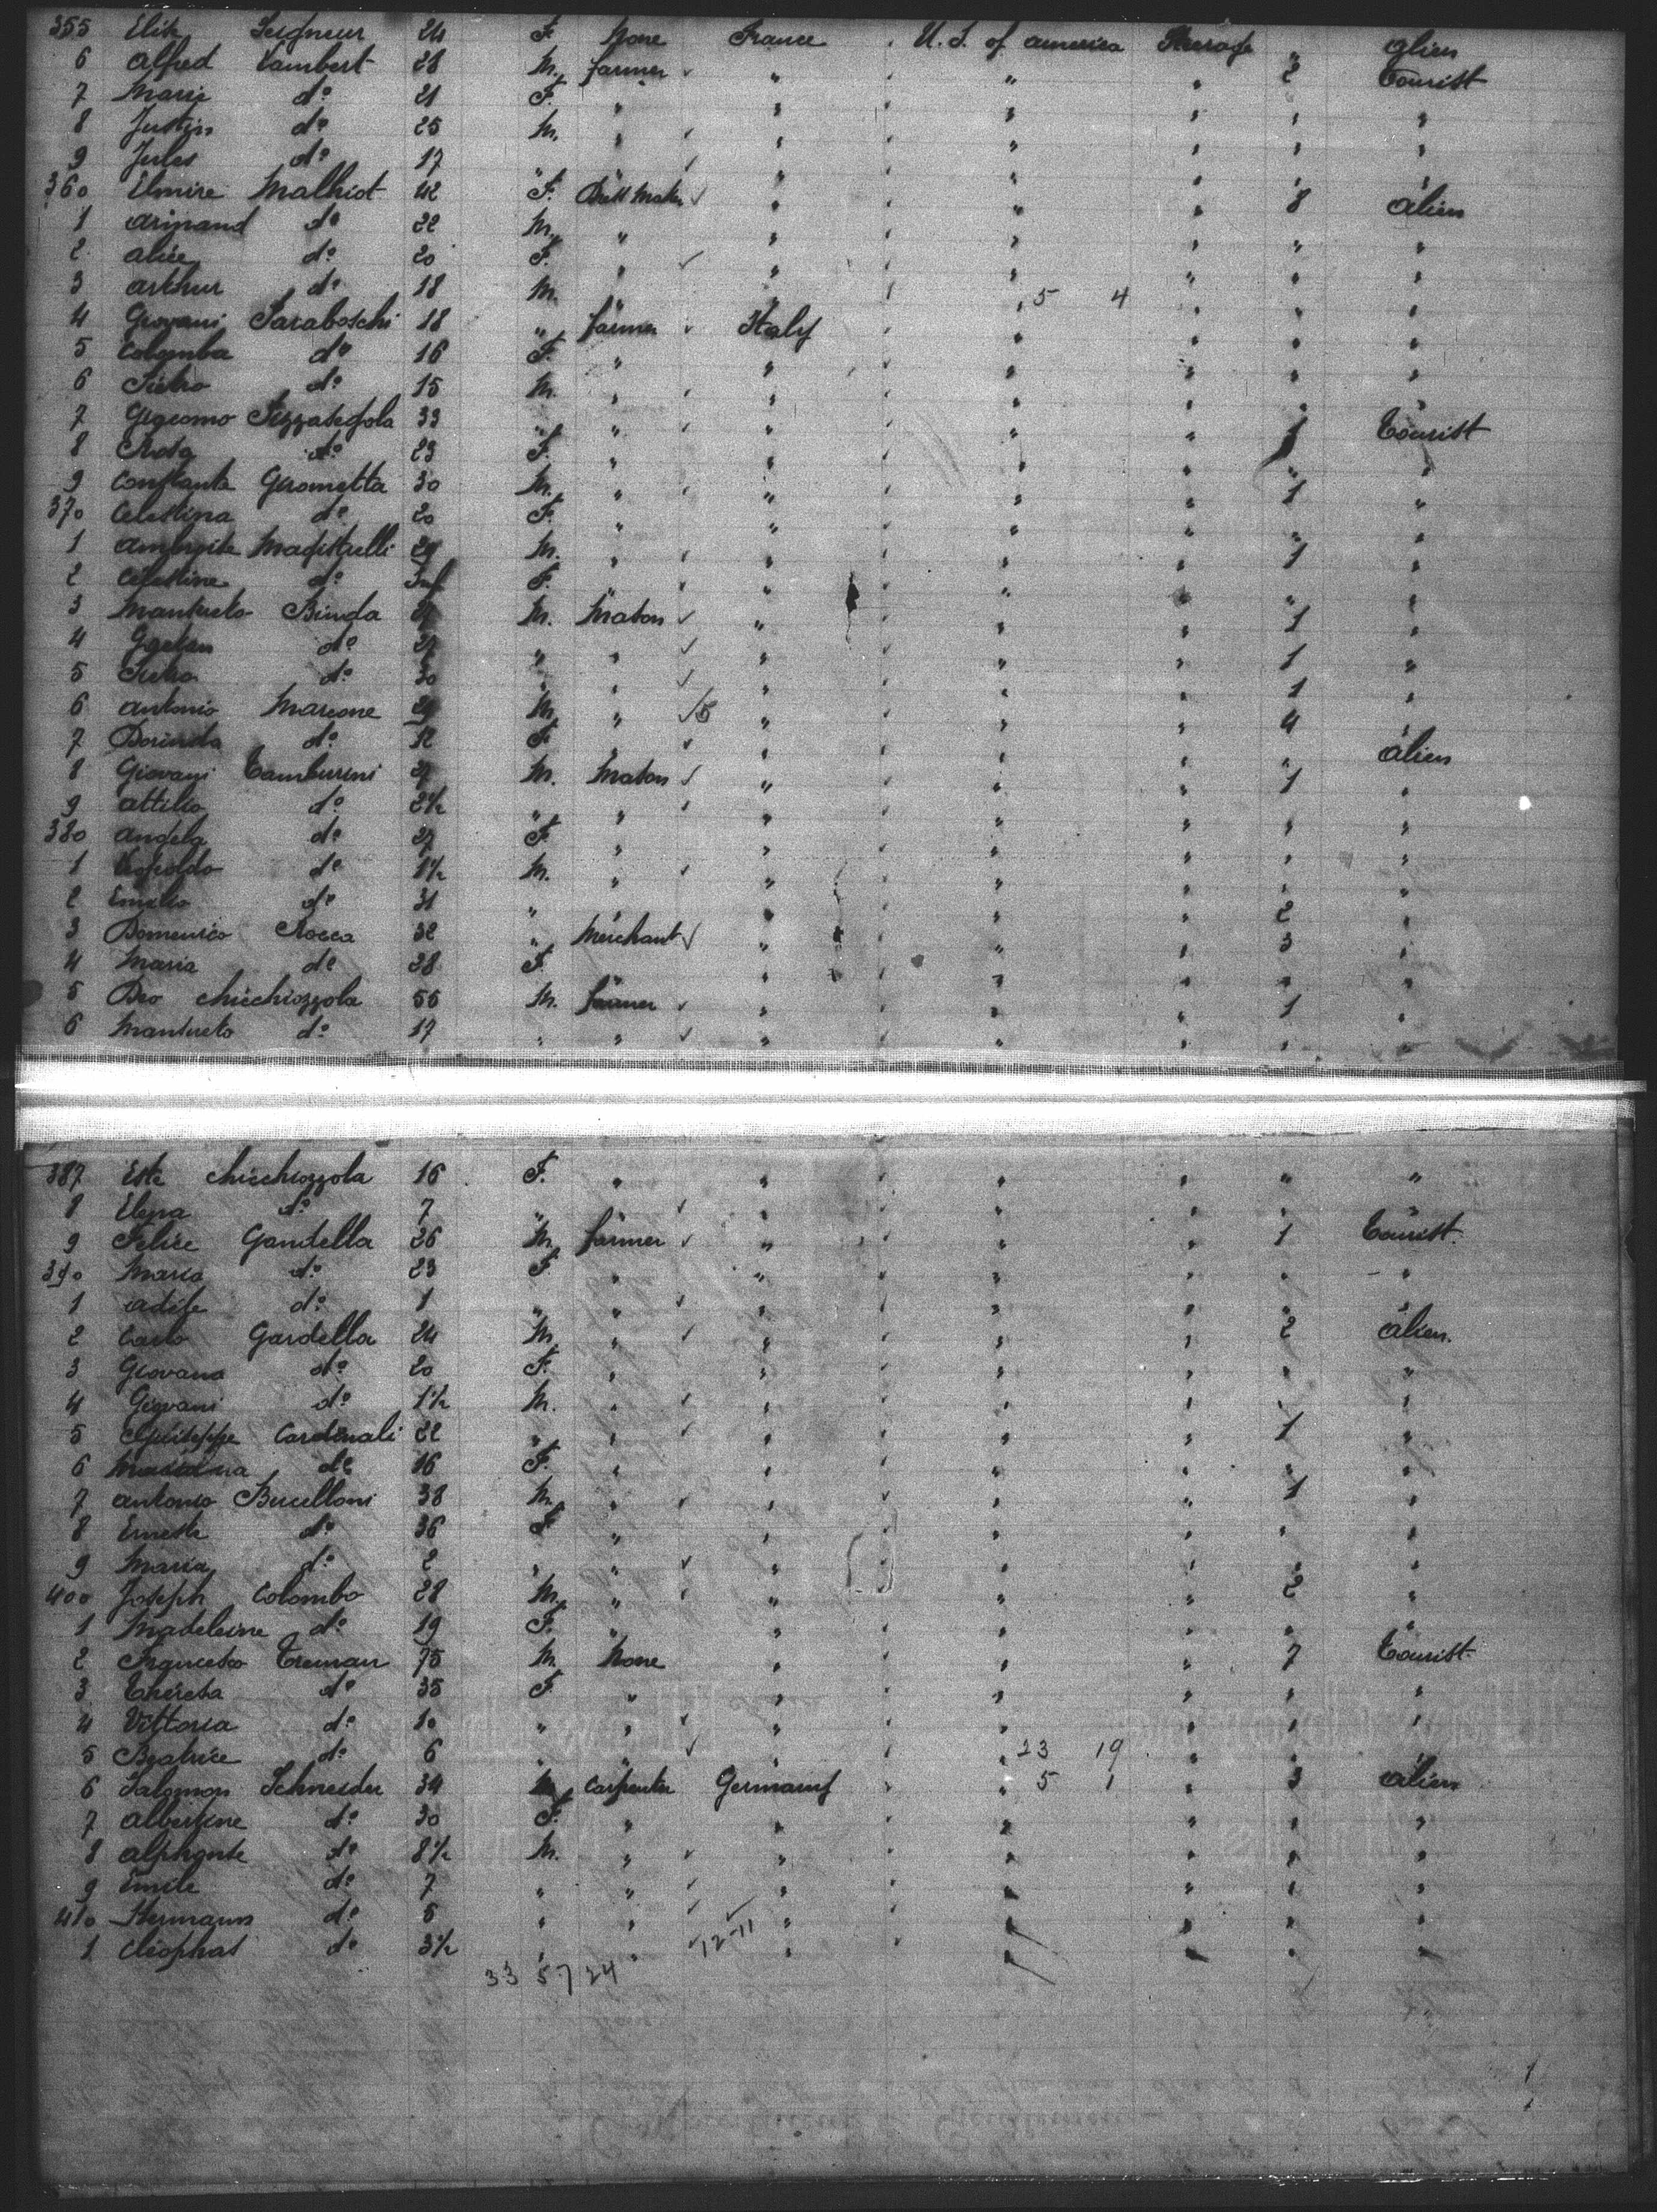 355 Elise Seigneur 24 F. None France U. S. of america Steerage " alien
6 alfred Lambert 28 M. farmer " " " 2 Tourist
7 Marie do 21 F. " " " " " "
8 Justin do 25 M. " " " " " "
9 Jules do 17 " " " " " " "
360 Elmire Malhiot 42 F. Dress Maker " " " 8 alien
1 armand do 22 M. " " " " " "
2 alice do 20 F. " " " " " "
3 arthur do 18 M. " " " 5 4 " " "
4 Giovani Saraboschi 18 " farmer Italy " " " "
5 Colomba do 16 F. " " " " " "
6 Pietro do 15 M. " " " " " "
7 Giacomo 33 " " " " " 1 Tourist
8 Rosa do 23 F. " " " " " "
9 Constante Girometta 30 M. " " " " 1 "
370 Celestina do 20 F. " " " " " "
1 Magistrelli 29 M. " " " " 1 "
2 Celestine do Inf F. " " " " " "
3 Mansueto Binda 27 M. Mason " " " 1 "
4 Gaetan do 27 " " " " " 1 "
5 Pietro do 30 " " " " " 1 "
6 antonio Marione 29 M. " 5 " " " 4 "
7 Dorinda do 12 F. " " " " " alien
8 Giovani Tamburini 27 M. Mason " " " 1 "
9 attilio do 2½ " " " " " " "
380 angela do 27 F. " " " " " "
1 Leopoldo do 1½ M. " " " " " "
2 Emilio do 31 " " " " " 2 "
3 Domenico Rocca 32 " Merchant " " " 3 "
4 Maria do 28 F. " " " " " "
5 Deo chiechiozzola 55 M. farmer " " " 1 "
6 Mansueto do 17 " " " " " " "
387 Este chiechiozzola 16 F. " " " " " "
8 Elena do 7 " " " " " " "
9 Felice Gandella 26 M. farmer " " " 1 Tourist.
390 Maria do 23 F. " " " " " "
1 adele do 1 " " " " " " "
2 Carlo Gardella 24 M. " " " " 2 alien.
3 Giovana do 20 F. " " " " " "
4 Giovani do 1½ M. " " " " " "
5 Guiseppe Cardinali 22 " " " " " 1 "
6 Mariana do 16 F. " " " " " "
7 antonio Bucelloni 38 M. " " " " 1 "
8 Erneste do 36 F. " " " " " "
9 Maria do 2 " " " " " " "
400 Joseph Colombo 28 M. " " " " 2 "
1 Madeleine do 19 F. " " " " " "
2 Francesco Treman 75 M. None " " " 7 Tourist.
3 Theresa do 35 F. " " " " " "
4 Vittoria do 10 " " " " " " "
5 Beatrice do 6 " " " " 23 19 " " "
6 Salomon Schneider 34 M carpenter Germany " 5 1 " 3 alien
7 albertine do 30 F. " " " " " "
8 alphonse do 8½ M. " " " " " "
9 Emile do 7 " " " " " " "
410 Hermann do 5 " " " " " " "
1 Cléophas do 3½ " " 12-11 " " " " "
33 57 24